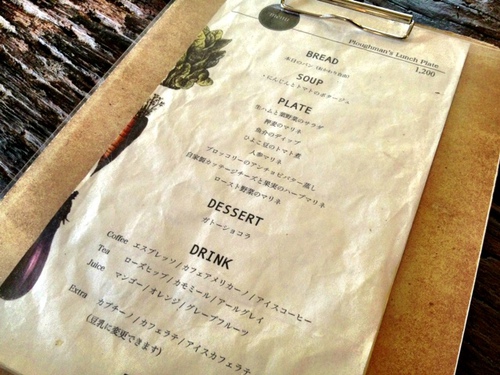 Ploughman's Lunch Plate
1,200
BREAD
本日のパン(おかわり自由)
SOUP
・にんじんとトマトのポタージュ
PLATE
生ハムと葉野菜のサラダ
押麦のマリネ
魚介のディップ
ひよこ豆のトマト煮
人参マリネ
ブロッコリーのアンチョビバター蒸し
自家製カッテージチーズと果実のハーブマリネ
ロースト野菜のマリネ
DESSERT
ガトーショコラ
DRINK
Coffee エスプレッソ/カフェアメリカーノ/アイスコーヒー
Tea ローズヒップ/カモミール/アールグレイ
Juice マンゴー/オレンジ/グレープフルーツ
Extra カプチーノ/カフェラテ/アイスカフェラテ
(豆乳に変更できます)